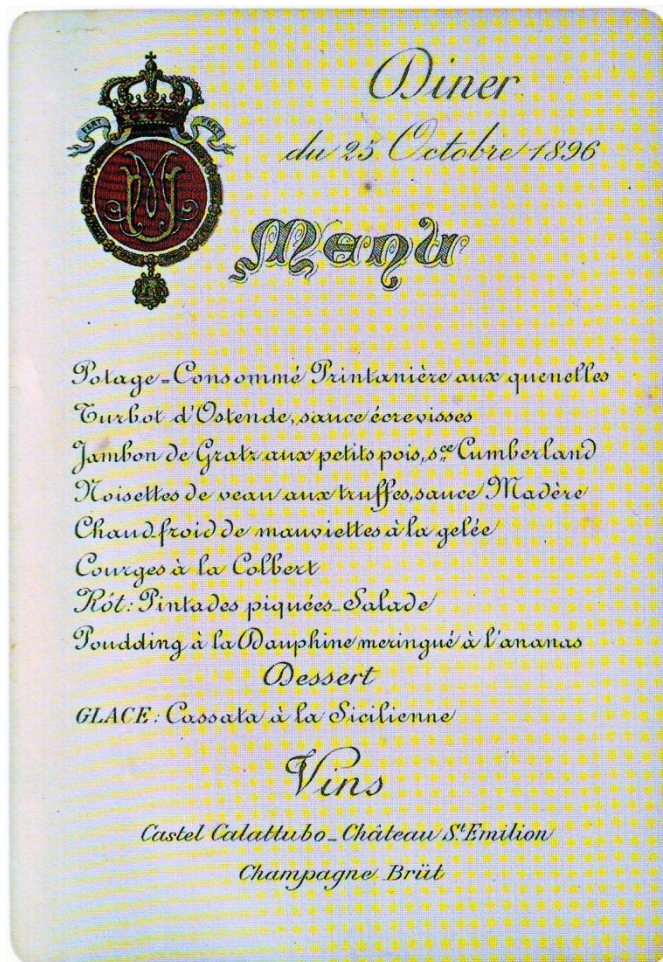 FERT FERT
Diner
du 25 Octobre 1896
Menu
Potage-Consommé Printanière aux quenelles
Turbot d'Ostende, sauce écrevisses
Jambon de Gratz aux petits pois, sce Cumberland
Noisettes de veau aux truffes, sauce Madère
Chaud.froid de mauviettes à la gelée
Courges à la Colbert
Rôt: Pintades piquées-Salade
Poudding à la Dauphine meringué à l'ananas
Dessert
GLACE: Cassata à la Sicilienne
Vins
Castel Calattubo-Château St Emilion
Champagne Brüt